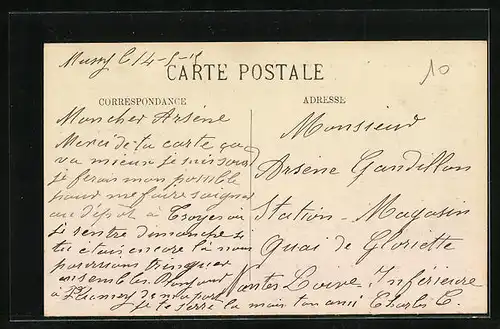 Mussy le 14-5-15
10
CARTE POSTALE
CORRESPONDANCE
ADRESSE
Mon cher Arsène
Merci de ta carte ça
va mieux je suis sous
je ferais mon possible
pour me faire soigner
au dépôt à Troyes ou
je rentre dimanche si
tu étais encore là nous
pourrions trinquer
ensemble Bonjour
à de ma part
je te serre la main ton ami Charles C.
Monsieur
Arsène Gandillon
Station-Magasin
Quai de Gloriette
Nantes Loire Inférieure